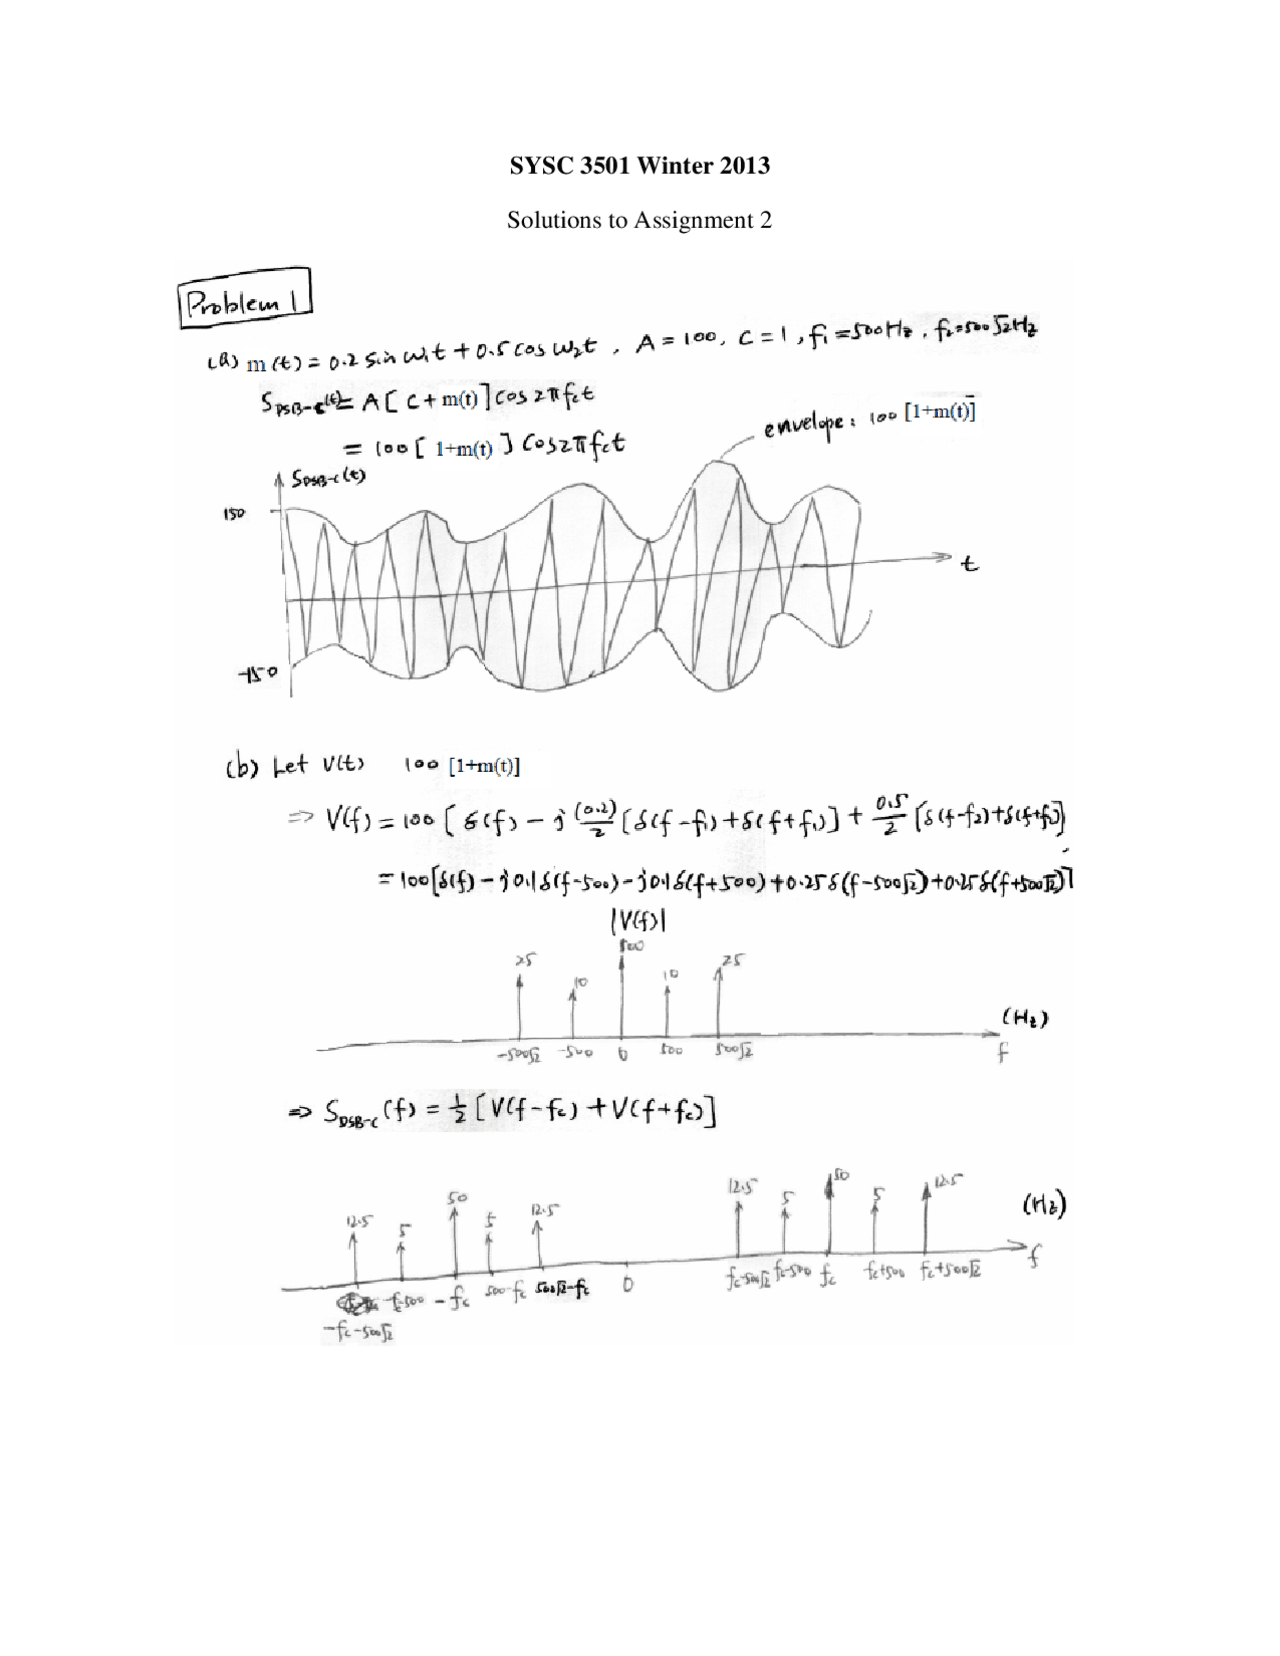 SYSC 3501 Winter 2013
Solutions to Assignment 2
Problem 1
(a) m(t) = 0.2 sin ω₁t + 0.5 cos ω₂t , A = 100, C = 1, f₁ = 500Hz, f₂ = 500√2Hz
S_DSB-C(t) = A [ C + m(t) ] cos 2πf_ct
= 100 [ 1+m(t) ] cos 2πf_ct
envelope: 100 [1+m(t)]
S_DSB-C(t)
150
t
-150
(b) Let V(t) 100 [1+m(t)]
⇒ V(f) = 100 [ δ(f) - j (0.2)/2 [δ(f-f₁)+δ(f+f₁)] + 0.5/2 [δ(f-f₂)+δ(f+f₂)]
= 100[δ(f) - j0.1δ(f-500) - j0.1δ(f+500) + 0.25δ(f-500√2) + 0.25δ(f+500√2)]
|V(f)|
25 10 100 10 25
(Hz)
-500√2 -500 0 500 500√2 f
⇒ S_DSB-C(f) = 1/2 [V(f-f_c) + V(f+f_c)]
12.5 5 50 5 12.5 12.5 5 50 5 12.5 (Hz)
-f_c-500 -f_c 500-f_c 500√2-f_c 0 f_c-500√2 f_c-500 f_c f_c+500 f_c+500√2 f
-f_c-500√2